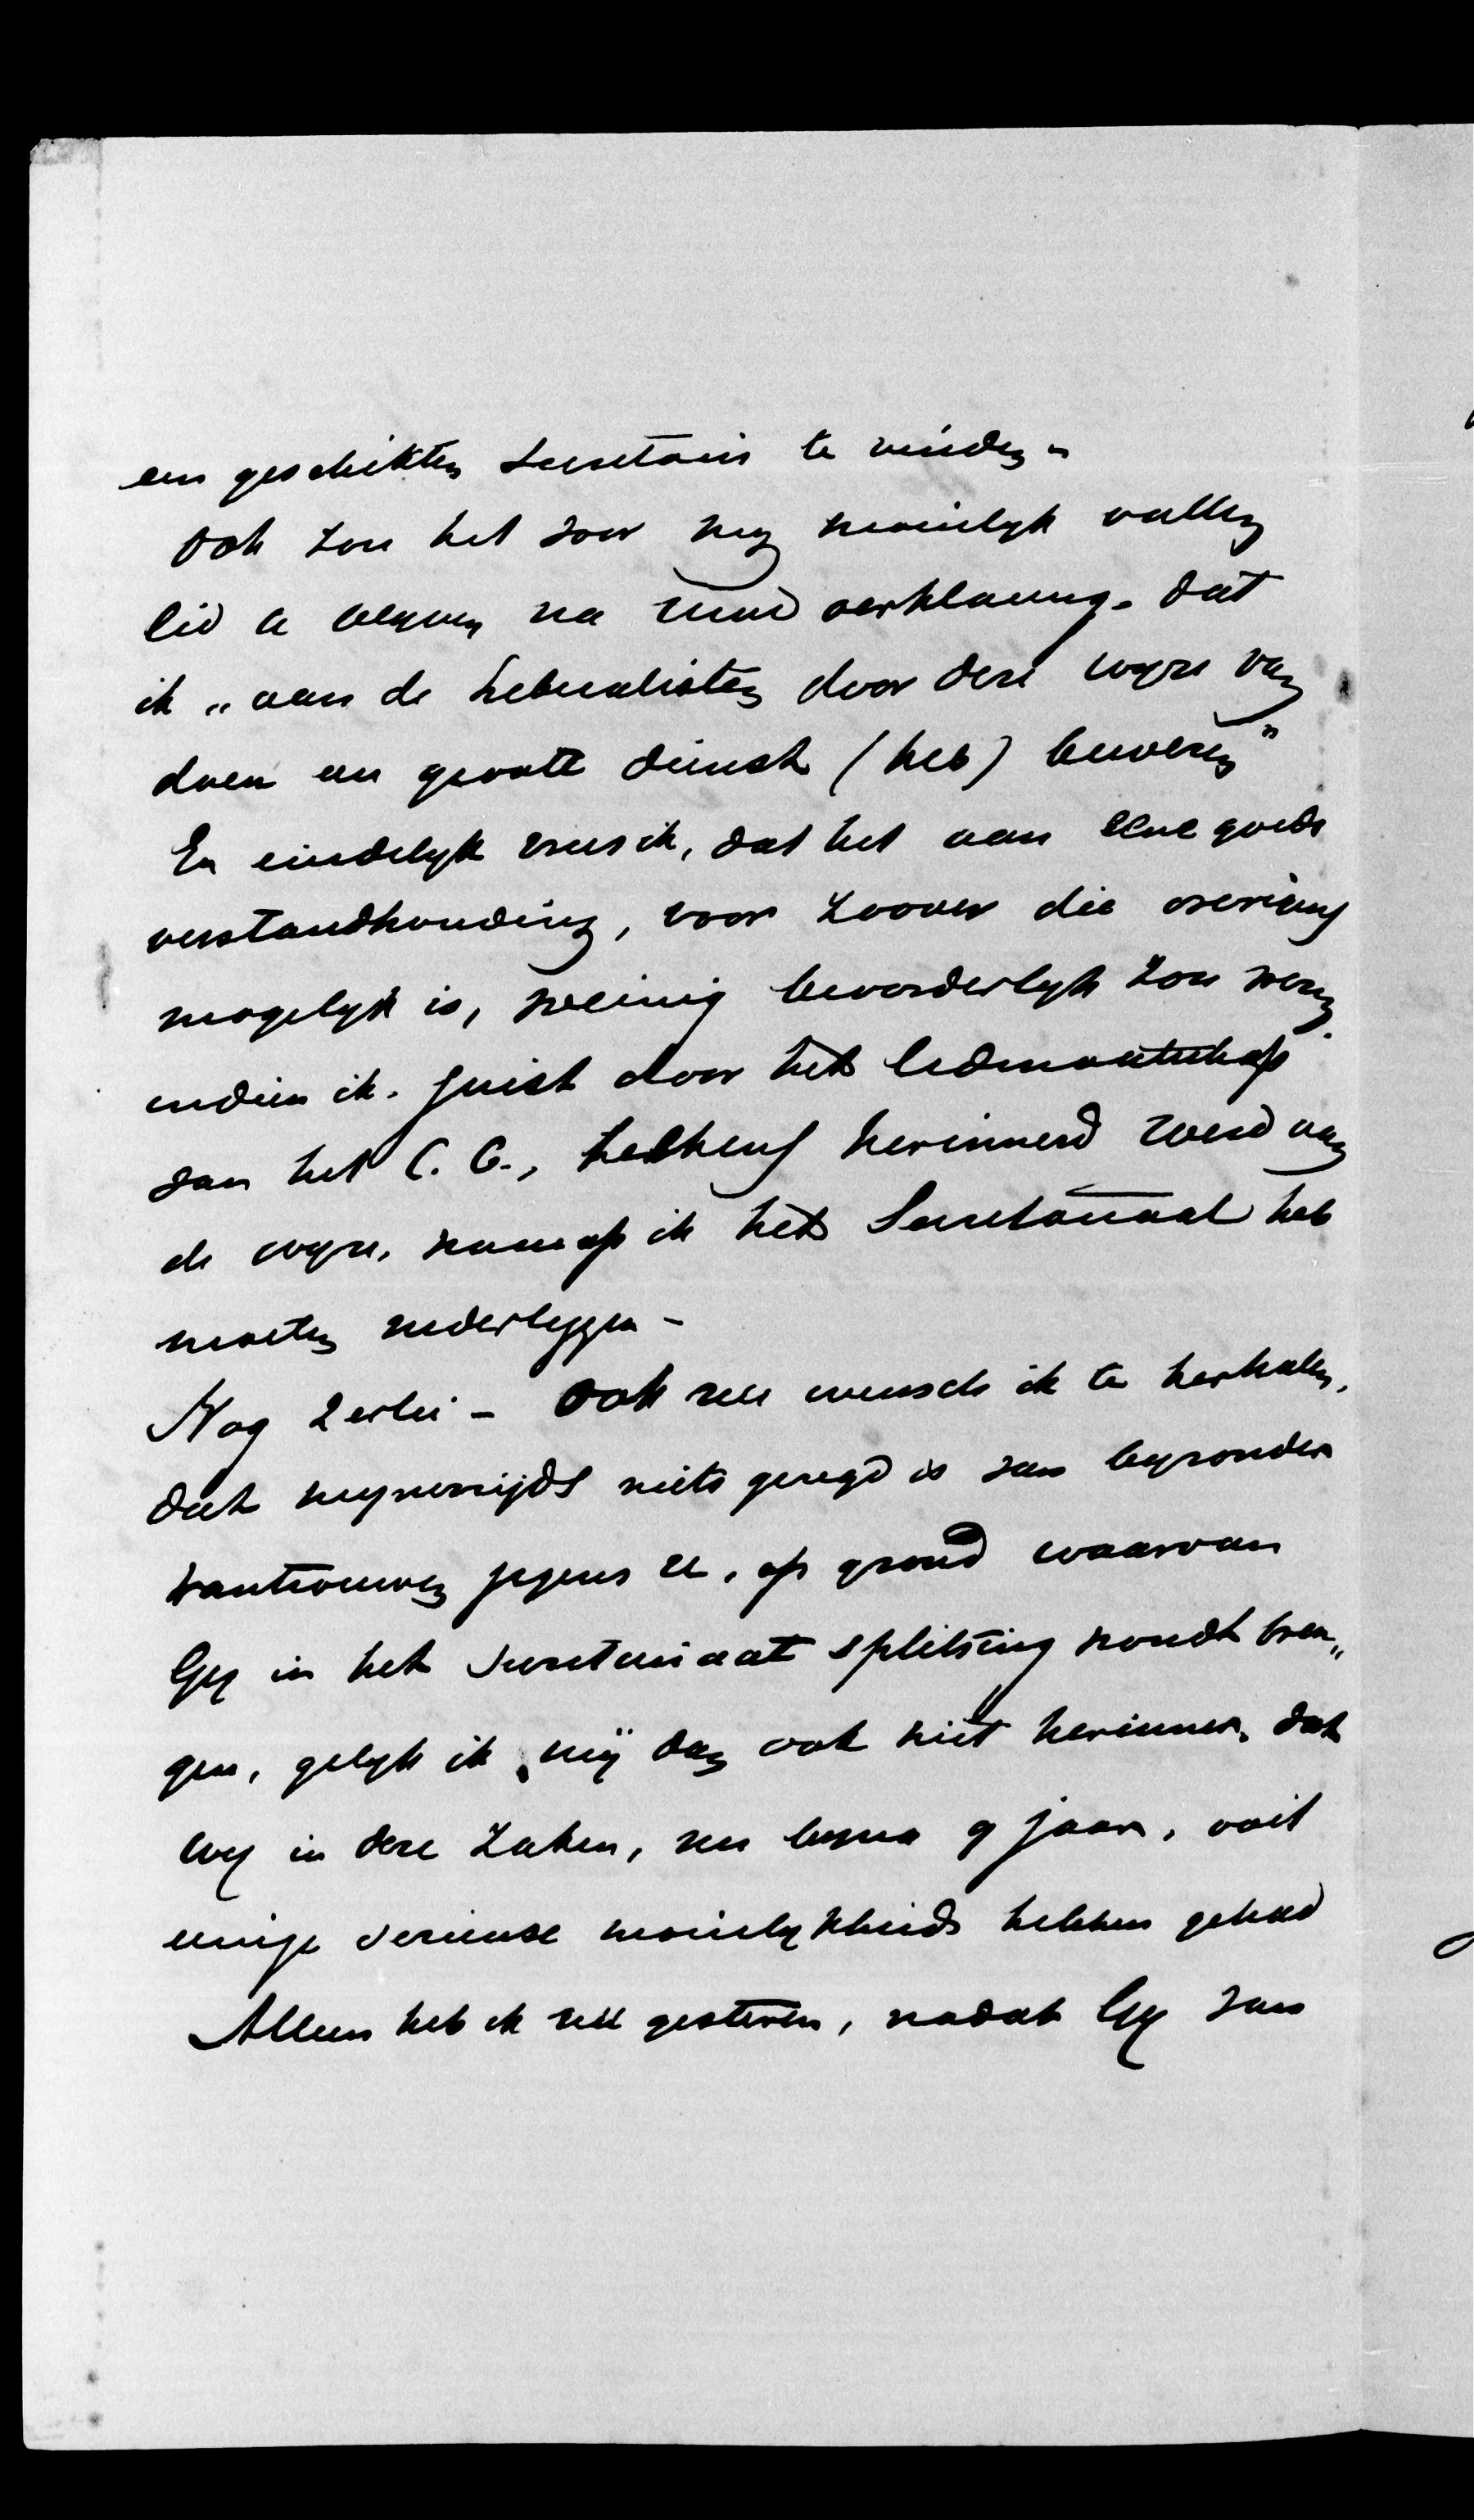 een geschikten Secretaris te vinden -
Ook zou het voor my moeielyk vallen
lid te blyven na Uwe verklaring, dat
ik „aan de liberalisten door deze wyze van
doen een groote dienst (heb) bewezen"
En eindelyk vrees ik, dat het aan eene goede
verstandhouding, voor zoover die overigens
mogelyk is, weinig bevorderlyk zou wezen,
indien ik, juist door het lidmaatschap
van het C. C., telkens herinnerd werd aan
de wyze, waarop ik het Secretariaat heb
moeten nederleggen -
Nog 2erlei - Ook nu wensch ik te herhalen,
dat mynerzijds niets gezegd is van byzonder
wantrouwen jegens U, op grond waarvan
Gy in het Secretariaat splitsing woudt bren„
gen, gelyk ik mij dan ook niet herinner, dat
wy in deze zaken, nu byna 9 jaar, ooit
eenige serieuse moeielykheids hebben gehad
Alleen heb ik gisteren, nadat Gy van